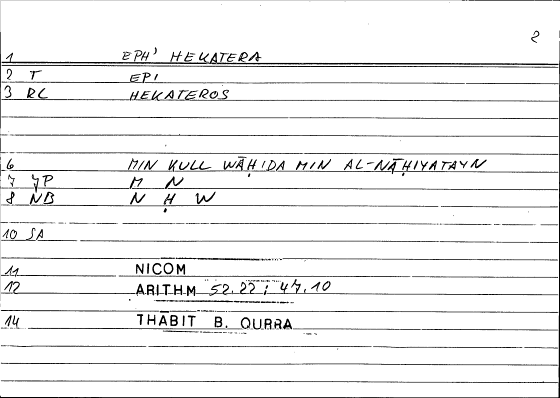 2
1 EPH' HEKATERA
2 T EPI
3 RC HEKATEROS
6 MIN KULL WĀḤIDA MIN AL-NĀḤIYATAYN
7 JP M N
8 NB N Ḥ W
10 SA
11 NICOM
12 ARITHM 52.22; 47.10
14 THABIT B. QURRA